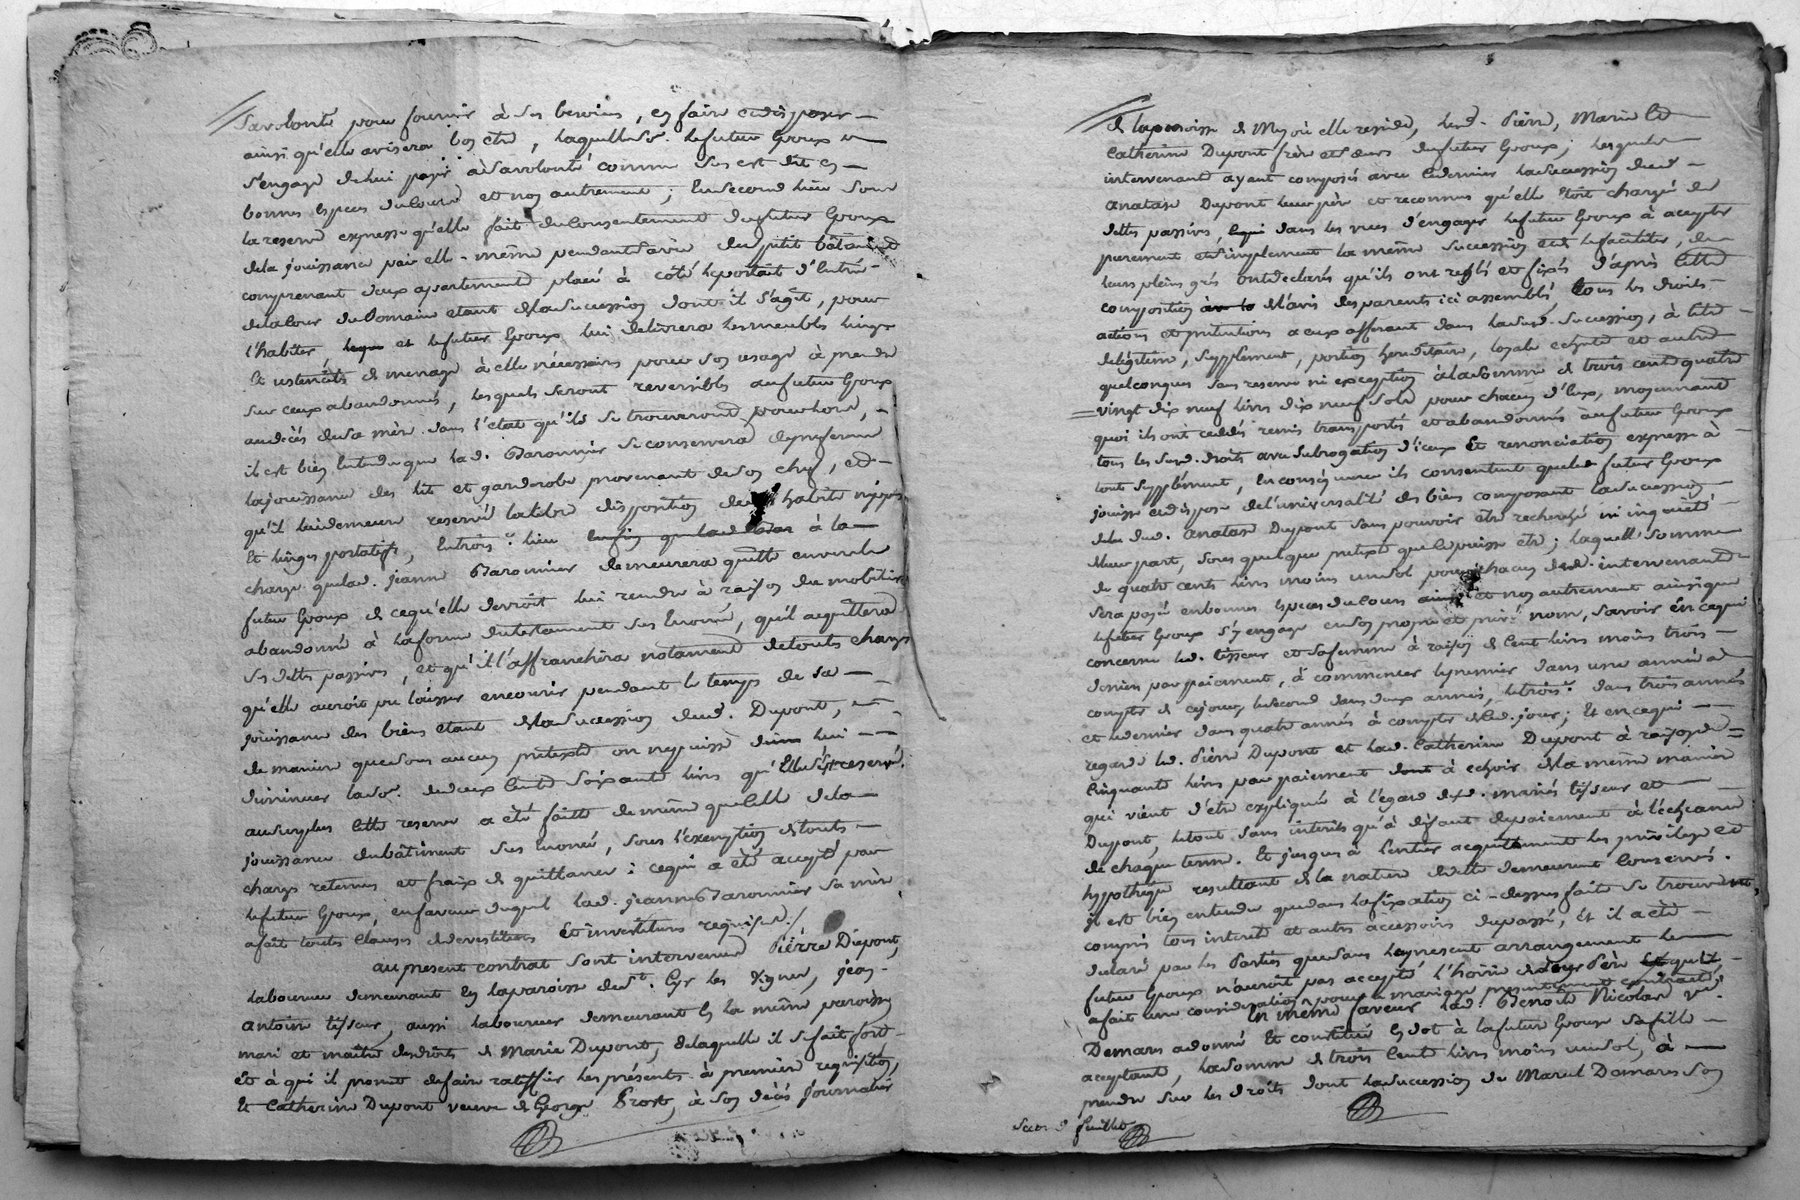 savolonté pour fournir à ses besoins, en faire et disposer
ainsi qu'elle avisera bon etre, laquelle so. le futur Epoux
s'engage de lui payer à sa volonté comme sus est dit en
bonnes especes de cours et non autrement; en second lieu sous
la reserve expresse qu'elle fait du consentement du futur Epoux
dela jouissance par elle-même pendant sa vie du petit bâtiment
comprenant deux apartements placé à côté le portail d'entrée
de la cour du Domaine etant de la succession dont il s'agit, pour
l'habiter, et le futur Epoux lui delivrera les meubles linge
et ustencils de menage à elle nécessaires pour son usage à prendre
sur ceux abandonnés, lesquels seront reversibles au futur Epoux
au décès de sa mère dans l'état qu'ils se trouveront pour lors,
il est bien entendu que lad. Baronnier se conservera
la jouissance des lits et garderobe provenant de son chef, et
qu'il lui demeure reservé la libre disposition de habits nippes
et linges portatifs, en trois.e lieu enfin que lad. à la
charge que lad. jeanne Baronnier demeurera quitte envers le
futur Epoux de ce qu'elle devroit lui rendre à raison du mobilier
abandonné à la forme du testament sus enoncé, qu'il acquittera
ses dettes passives, et qu'il l'affranchira notament de toutes charges
qu'elle auroit pu laisser encourir pendant le temps de sa
jouissance des biens etant de la succession dud. Dupont,
de maniere que sous aucun pretexte on ne puisse lui
diminuer la so. de deux cents soixante livres qu'elle s'est reservé.
au surplus cette reserve a été faitte de même que celle de la
jouissance du bâtiment sus enoncé, sous l'exemption de toutes
charges retenues et fraix de quittance: ce qui a été accepté par
le futur Epoux, en faveur duquel lad. jeanne Baronnier sa mère
a fait toutes clauses de devestitures et investitures requises./
au present contrat sont intervenus Pierre Dupont,
laboureur demeurant en la paroisse de St. Cyr les Vignes, jean-
antoine tisseur, aussi laboureur demeurant en la même paroisse
mari et maître des droits de Marie Dupont, de laquelle il se fait fort
et à qui il promet de faire ratiffier les présentes à premiere requisition,
et Catherine Dupont veuve de George Prost, à son décès journalier
de la paroisse de où elle reside, lesd. Pierre, Marie et
Catherine Dupont frère et sœurs du futur Epoux; lesquels
intervenants ayant composés avec ce dernier la succession dud.
anatase Dupont leur père et reconnus qu'elle étoit chargée de
dettes passives, dans les vues d'engager le futur Epoux à accepter
purement et simplement la même succession et le faciliter, de
leurs pleins grés ont declarés qu'ils ont reglé et fixés d'après cette
composition de l'avis des parents ici assemblés, tous les droits
actions et prétentions a eux afferant dans lad. succession, à titre
de légitime, supplement, portion hereditaire, loyale echute et autre
quelconques sans reserve ni exception à la somme de trois cents quatre
vingt dix neuf livres dix neuf sols pour chacun d'eux, moyennant
quoi ils ont ceddés remis transportés et abandonnés au futur Epoux
tous les sus d. droits avec subrogation d'iceux et renonciation expresse à
tout supplément, en conséquence ils consentent que led. futur Epoux
jouisse et dispose de l'universalité des biens composant la succession
dud. anatase Dupont sans pouvoir être recherché ni inquiété
de leur part, sous quelque pretexte que ce puisse etre; laquelle somme
de quatre cents livres moins un sol pour chacun desd. intervenants
sera payé en bonnes especes de cours et non autrement ainsi que
le futur Epoux s'y engage en son propre et privé nom, savoir en ce qui
concerne led. tisseur et sa femme à raison de cent livres moins trois
deniers par paiement, à commencer le premier dans une année à
compter de ce jour, le second dans deux années, le trois.e dans trois années
et ce dernier dans quatre années à compter de ced. jour; et en ce qui
regarde led. Pierre Dupont et lad. Catherine Dupont à raison de
cinquante livres par paiement à echoir de la même maniere
qui vient d'être expliquée à l'égard desd. mariés tisseur et
Dupont, le tout sans interets qu'à défaut de paiement à l'échéance
de chaque terme. Et jusques à l'entier acquittement les privilege et
hypotheque resultant de la nature de dette demeurent conservés.
il est bien entendu que dans la fixation ci-dessus faite se trouvent
compris tous interets et autres accessoires du passé, et il a été
declaré par les Parties que sans le present arrangement le
futur Epoux n'auroit pas accepté l'hoirie de leur Père
en même faveur lad. Benoite Nicolas ve.
Demars a donné et constitué en dot à la future Epouse sa fille
acceptante, la somme de trois cents livres moins un sol, à
prendre sur les droits dont la succession de Marcel Demars son